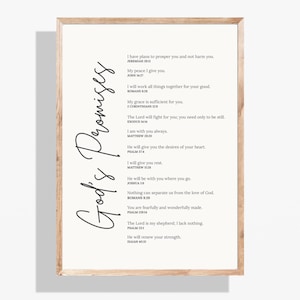 God's Promises
I have plans to prosper you and not harm you.
JEREMIAH 29:11
My peace I give you.
JOHN 14:27
I will work all things together for your good.
ROMANS 8:28
My grace is sufficient for you.
2 CORINTHIANS 12:9
The Lord will fight for you; you need only to be still.
EXODUS 14:14
I am with you always.
MATTHEW 28:20
He will give you the desires of your heart.
PSALM 37:4
I will give you rest.
MATTHEW 11:28
He will be with you where you go.
JOSHUA 1:9
Nothing can separate us from the love of God.
ROMANS 8:39
You are fearfully and wonderfully made.
PSALM 139:14
The Lord is my shepherd; I lack nothing.
PSALM 23:1
He will renew your strength.
ISAIAH 40:31